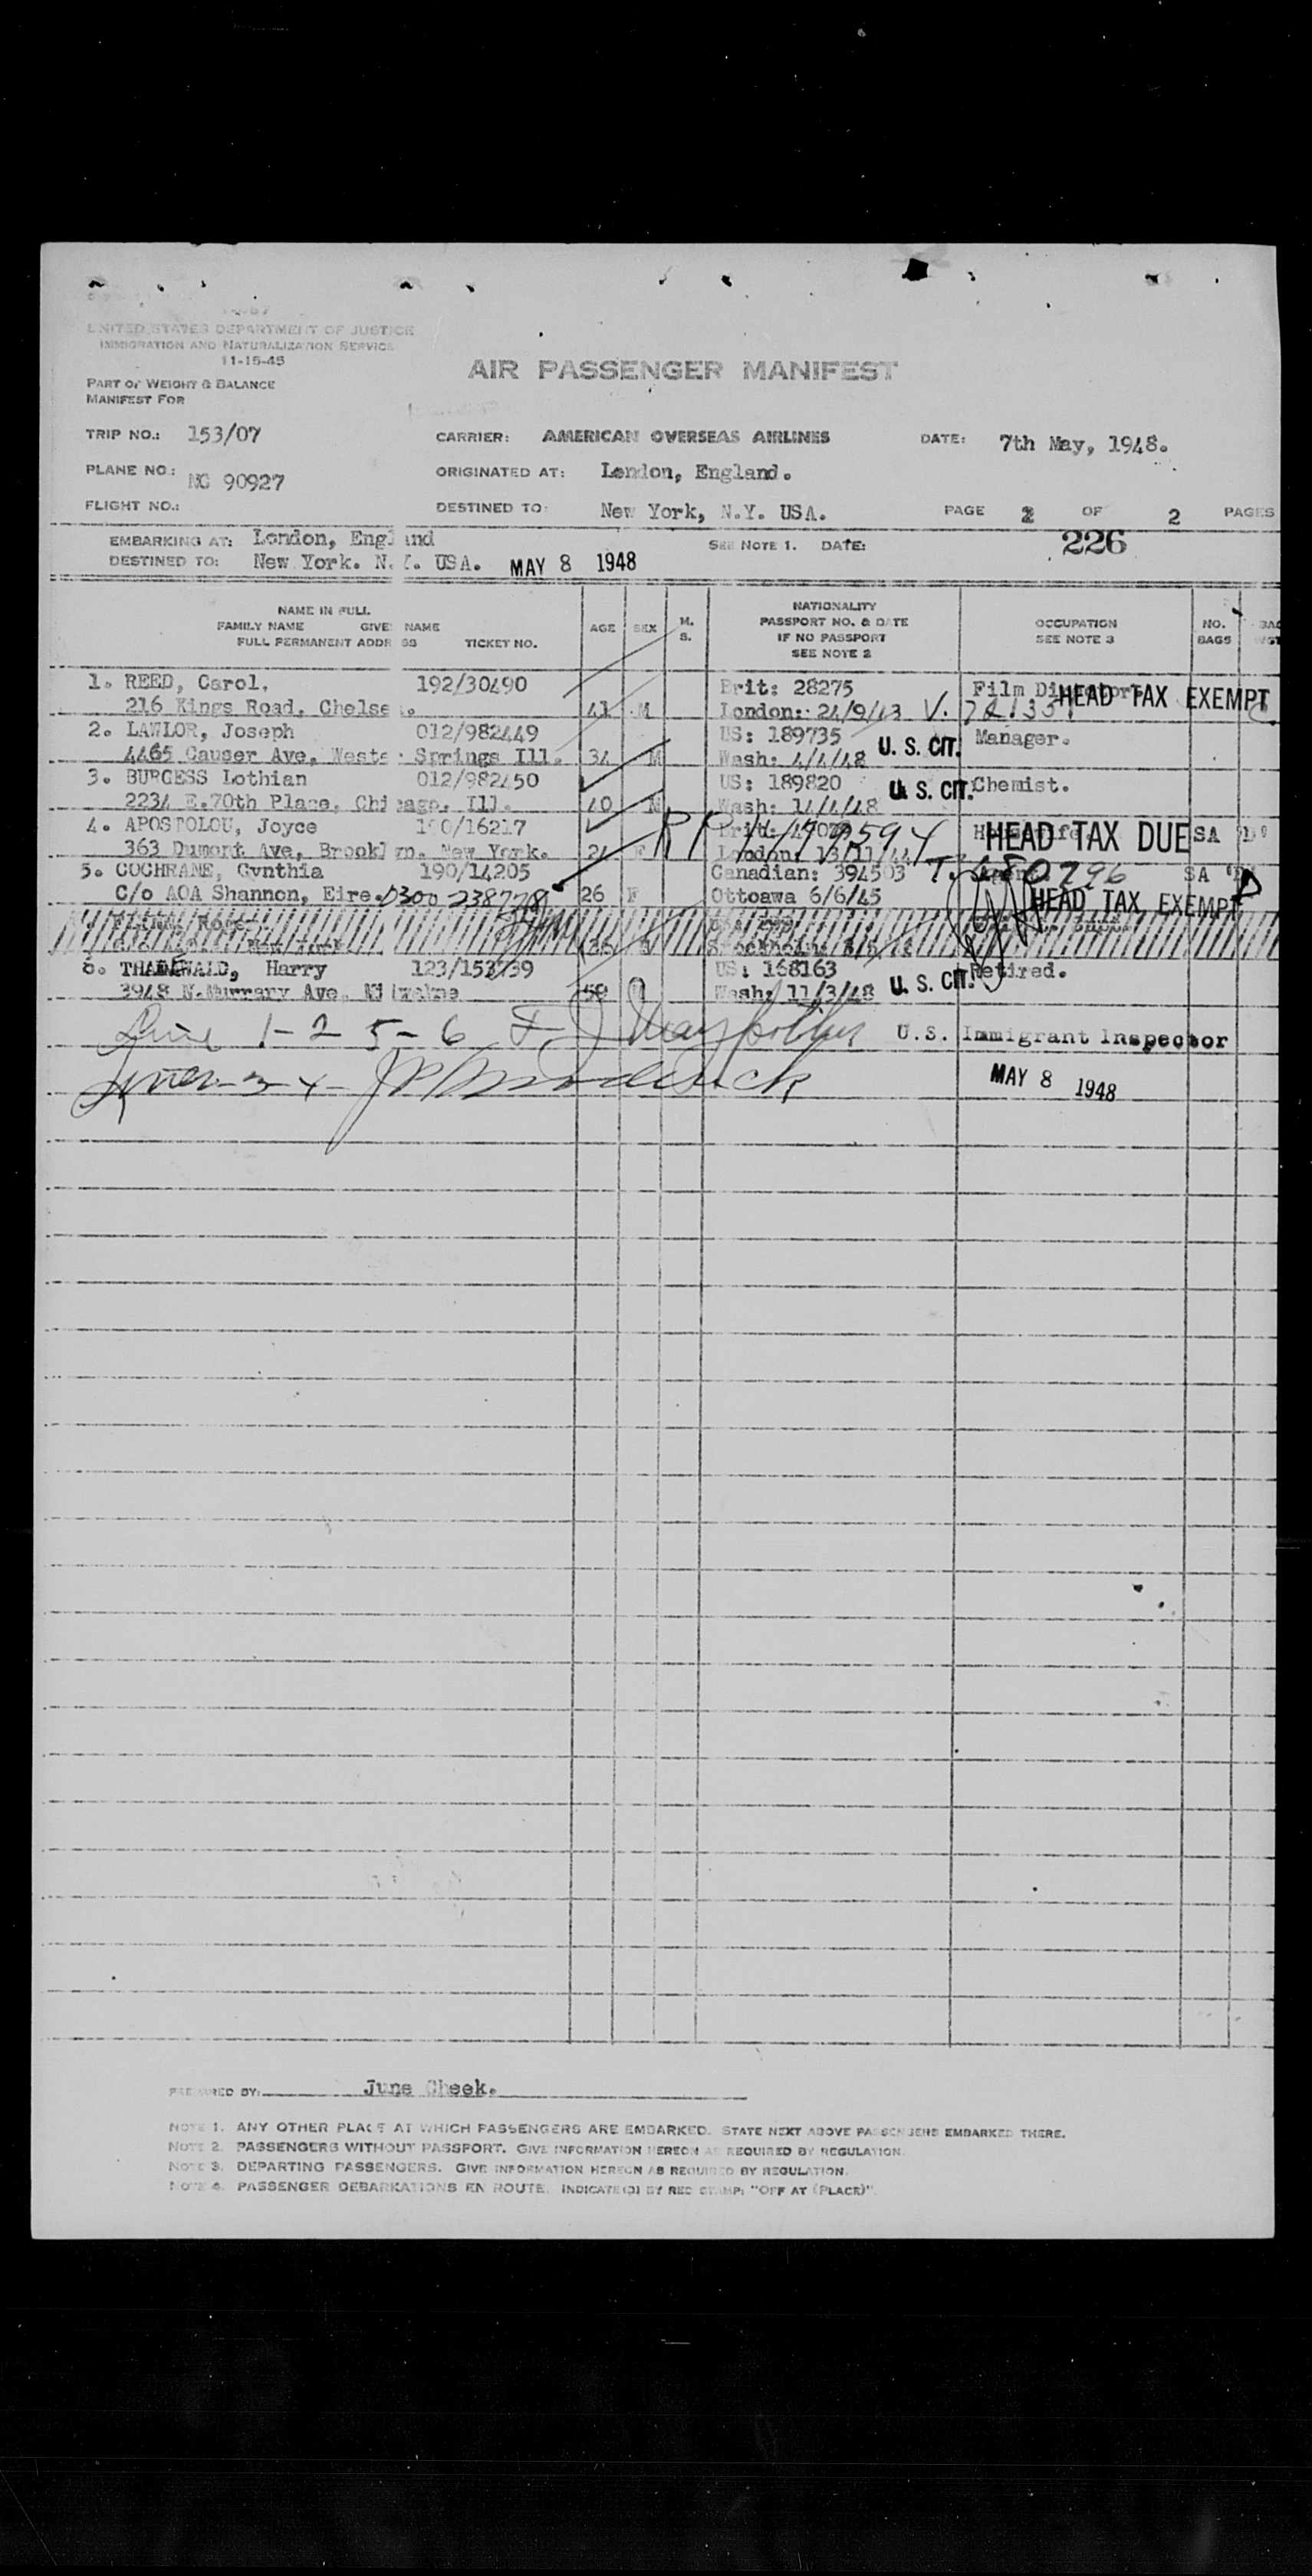 UNITED STATES DEPARTMENT OF JUSTICE
IMMIGRATION AND NATURALIZATION SERVICE
11-15-45
AIR PASSENGER MANIFEST
PART OF WEIGHT & BALANCE
MANIFEST FOR
TRIP NO.: 153/07 CARRIER: AMERICAN OVERSEAS AIRLINES DATE: 7th May, 1948.
PLANE NO.: NC 90927 ORIGINATED AT: London, England.
FLIGHT NO.: DESTINED TO: New York, N.Y. USA. PAGE 2 OF 2 PAGES
EMBARKING AT: London, England SEE NOTE 1. DATE: 226
DESTINED TO: New York. N.Y. USA. MAY 8 1948
NAME IN FULL
FAMILY NAME GIVE NAME
FULL PERMANENT ADDR SS TICKET NO.
AGE SEX M. S.
NATIONALITY
PASSPORT NO. & DATE
IF NO PASSPORT
SEE NOTE 2
OCCUPATION
SEE NOTE 3
NO.
BAGS
1. REED, Carol. 192/30490 Brit: 28275 Film Director. HEAD TAX EXEMPT
216 Kings Road, Chelsea. 41 M London: 24/9/43 V.
2. LAWLOR, Joseph 012/982449 US: 189735 U. S. CIT. Manager.
4465 Causer Ave, Western Springs Ill. 34 M Wash: 4/4/48
3. BURGESS Lothian 012/982450 US: 189820 U. S. CIT. Chemist.
2234 E.70th Place, Chicago, Ill. 40 M Wash: 14/4/48
4. APOSTOLOU, Joyce 190/16217 Brit: Housewife. HEAD TAX DUE SA
363 Dumont Ave, Brooklyn. New York. 24 F London: 13/11/44
5. COCHRANE, Cynthia 190/14205 Canadian: 394503 SA
C/o AOA Shannon, Eire. 26 F Ottoawa 6/6/45 HEAD TAX EXEMPT
6. THADEWALD, Harry 123/152739 US: 168163 U. S. CIT. Retired.
3948 N.Murrary Ave, Milwakne 58 Wash: 11/3/48
Line 1-2 5-6 U.S. Immigrant Inspector
Lines 3 4 MAY 8 1948
PREPARED BY: June Cheek.
NOTE 1. ANY OTHER PLACE AT WHICH PASSENGERS ARE EMBARKED. STATE NEXT ABOVE PASSENGERS EMBARKED THERE.
NOTE 2. PASSENGERS WITHOUT PASSPORT. GIVE INFORMATION HEREON AS REQUIRED BY REGULATION.
NOTE 3. DEPARTING PASSENGERS. GIVE INFORMATION HEREON AS REQUIRED BY REGULATION.
NOTE 4. PASSENGER DEBARKATIONS EN ROUTE. INDICATE(D) BY RED STAMP: "OFF AT (PLACE)".